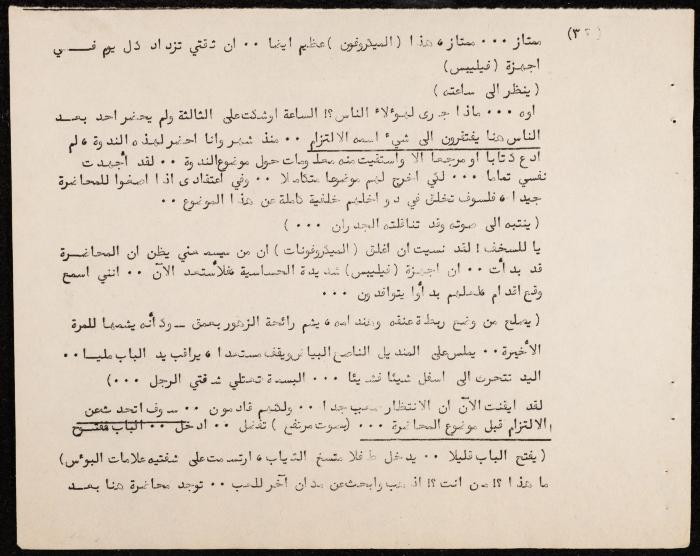 (٣٢)
ممتاز ٠٠٠ ممتاز، هذا (الميكروفون) عظيم ايضا ٠٠ ان ثقتي تزداد كل يوم فــي
اجهزة (فيليبس)
(ينظر الى ساعته)
اوه ٠٠٠ ماذا جرى لهؤلاء الناس؟! الساعة اوشكت على الثالثة ولم يحضر احد بعــد
الناس هنا يفتقرون الى شيء اسمه الالتزام ٠٠ منذ شهر وانا احضر لهذه الندوة، لم
ادع كتابا او مرجعا الا واستقيت منه معلومات حول موضوع الندوة ٠٠ لقد أجهدت
نفسي تماما ٠٠٠ لكي اخرج لهم موضوعا متكاملا ٠٠ وفي اعتقادى اذا اصغوا للمحاضرة
جيدا، فلسوف تخلق في دواخلهم خلفية كاملة عن هذا الموضوع ٠٠
(ينتبه الى صوته وقد تناقلته الجدران ٠٠٠)
يا للسخف! لقد نسيت ان اغلق (الميكروفونات) ان من سيسمعني يظن ان المحاضـرة
قد بدأت ٠٠ ان اجهزة (فيليبس) شديدة الحساسية، فلأستعد الآن ٠٠ انني اسمع
وقع اقدام، لعلهم بدأوا يتوافدون ٠٠٠
(يصلح من وضع ربطة عنقه وهندامه، يشم رائحة الزهور بعمق ــ وكأنه يشمها للمرة
الأخيرة ٠٠ يملس على المنديل الناصع البياض ويقف مستعدا، يراقب يد الباب مليـا ٠٠
اليد تتحرك الى اسفل شيئا فشيئا ٠٠٠ البسمة تعتلي شفتي الرجل ٠٠٠)
لقد ايقنت الآن ان الانتظار صعب جدا ٠٠ ولكنهم قادمون ٠٠ سـوف اتحدث عن
الالتزام قبل موضوع المحاضرة ٠٠٠ (بصوت مرتفع) تفضل ٠٠ ادخل ٠٠ الباب مفتـح
(يفتح الباب قليلا ٠٠ يدخل طفلا متسخ الثياب، ارتسمت على شفتيه علامات البؤس)
ما هذا؟! من انت؟! اذهب وابحث عن مكان آخر للعب ٠٠ توجد محاضرة هنا بعــد